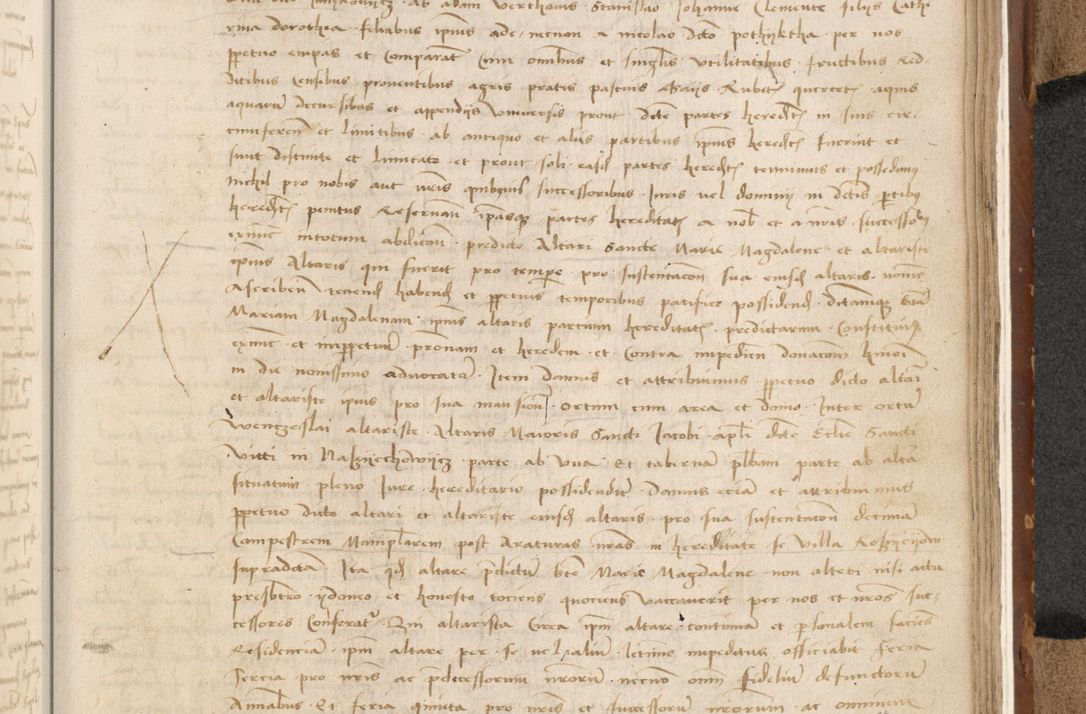 rina dorothea filiabus ipius ade, necnon a nicolao dicto pothyletha per nos
ppetuo empas et comparat cum omibus et singlis utilitatibus fructibus red-
ditibus censibus proventibus agris pratis pascuis quercet aquis
aquaru decursibus et appendijs universis prout dicte partes heredit in suis cir-
cumferen et limitibus ab antiquo et alijs partibus ipius heredit fuerint et
sunt distincte et limitate et prout soli easd partes heredit tenuimus et possedimus
nichil pro nobis aut nris quibuius successoribus Juris vel dominij in dictis ptibus
heredit penitus reservan ipasque partes hereditat a nob et a nris successorib
exnunc intotum abdican predicto Altari sancte Marie Magdalene et altariste
ipius Altaris qui fuerit pro tempe pro sustentacon sua eiusd altaris noie
ascriben tenend habend et ppetuis temporibus pacifice possidend dictamque btam
Mariam Magdalenam ipius altaris parcium hereditat predictarum constituim
exnunc et imppetuu pronam et heredem et contra impedien donacom hmoi
in die novissimo advocata Item damus et attribuimus ppetuo dicto altari
et altariste ipius pro sua mansione ortum cum area et domo inter ortu
Wenczeslai altariste Altaris Maioris Sancti Jacobi apli dicte Eclie Sancti
Viti in parte ab una Et taberna plbani parte ab alta
situatum pleno Jure hereditario possidendu Damus ecia et attribuimus
ppetuo dicto altari et altariste eiusd altaris pro sua sustentacon decima
Campestrem Maniplarem post Araturas nras in hereditate se villa
supradicta Ita qd altare pdictu bte Marie Magdalene non alteri nisi actu
presbtro ydoneo et honesto tociens quociens vaccaverit per nos et nros suc-
cessores conferat Qui altarista circa ipm altare continua et psonalem facies
Residencia ipm altare per se vel aliu letime impeditus officiabit feria
Tercia pro nris ac pdecessorum nrorum necno oim fideliu defunctoru
Animabus Et feria quinta pro nris et successoru nrorum ac omnium